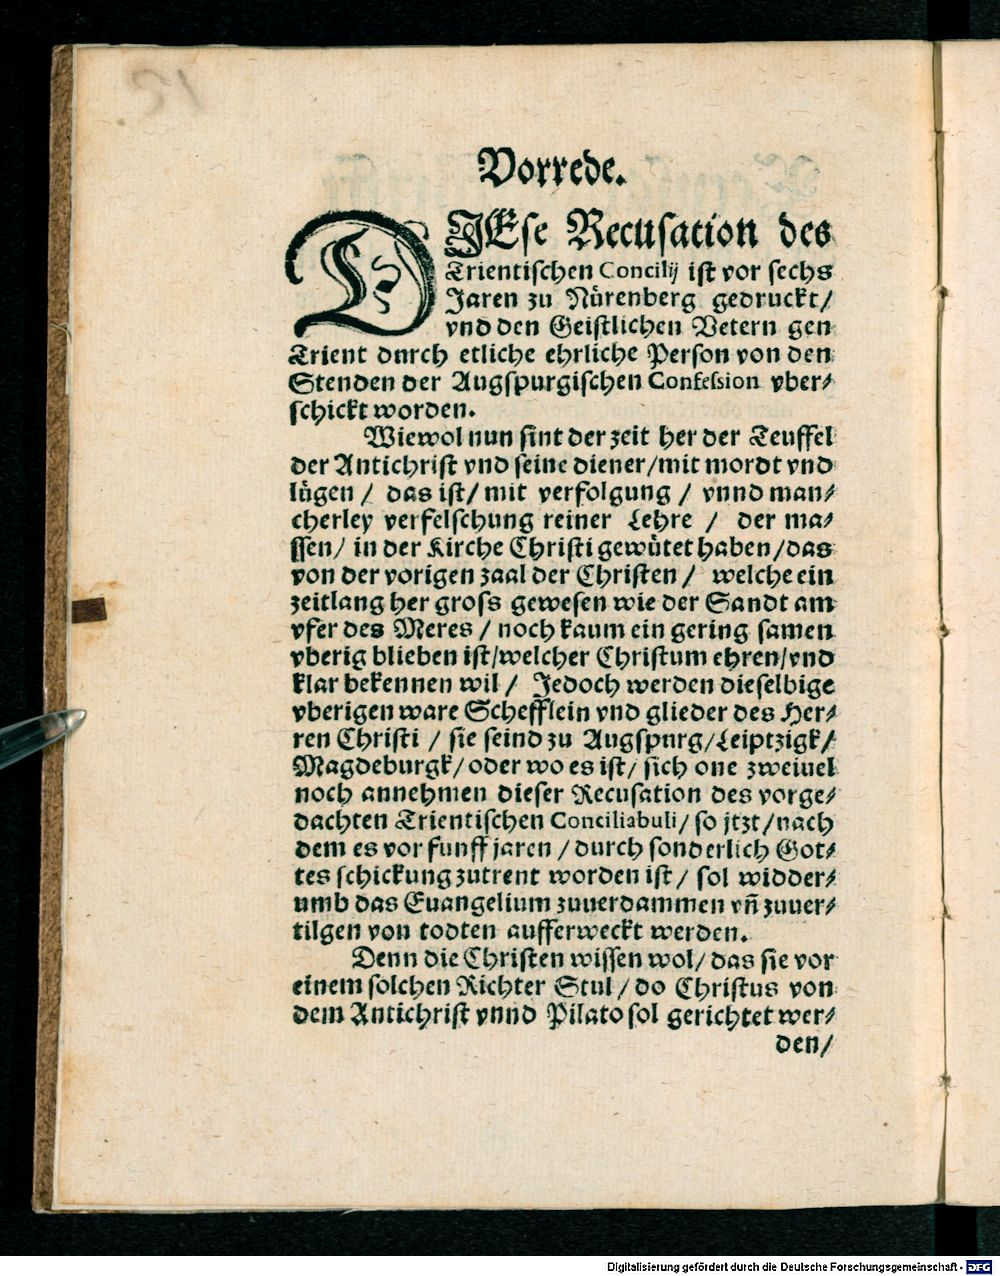 51
Vorrede.
DJEse Recusation des
Trientischen Concilij ist vor sechs
Jaren zu Nürenberg gedruckt/
vnd den Geistlichen Vetern gen
Trient durch etliche ehrliche Person von den
Stenden der Augspurgischen Confession vber/
schickt worden.
Wiewol nun sint der zeit her der Teuffel
der Antichrist vnd seine diener/mit mordt vnd
lügen / das ist/ mit verfolgung / vnnd man/
cherley verfelschung reiner Lehre / der ma/
ssen/ in der Kirche Christi gewütet haben/das
von der vorigen zaal der Christen / welche ein
zeitlang her gross gewesen wie der Sandt am
vfer des Meres / noch kaum ein gering samen
vberig blieben ist/welcher Christum ehren/vnd
klar bekennen wil / Jedoch werden dieselbige
vberigen ware Schefflein vnd glieder des Her/
ren Christi / sie seind zu Augspurg/Leiptzigk/
Magdeburgk/ oder wo es ist/ sich one zweiuel
noch annehmen dieser Recusation des vorge/
dachten Trientischen Conciliabuli/ so jtzt/nach
dem es vor funff jaren / durch sonderlich Got/
tes schickung zutrent worden ist/ sol widder/
umb das Euangelium zuuerdammen vñ zuuer/
tilgen von todten aufferweckt werden.
Denn die Christen wissen wol/ das sie vor
einem solchen Richter Stul / do Christus von
dem Antichrist vnnd Pilato sol gerichtet wer/
den/
Digitalisierung gefördert durch die Deutsche Forschungsgemeinschaft - DFG